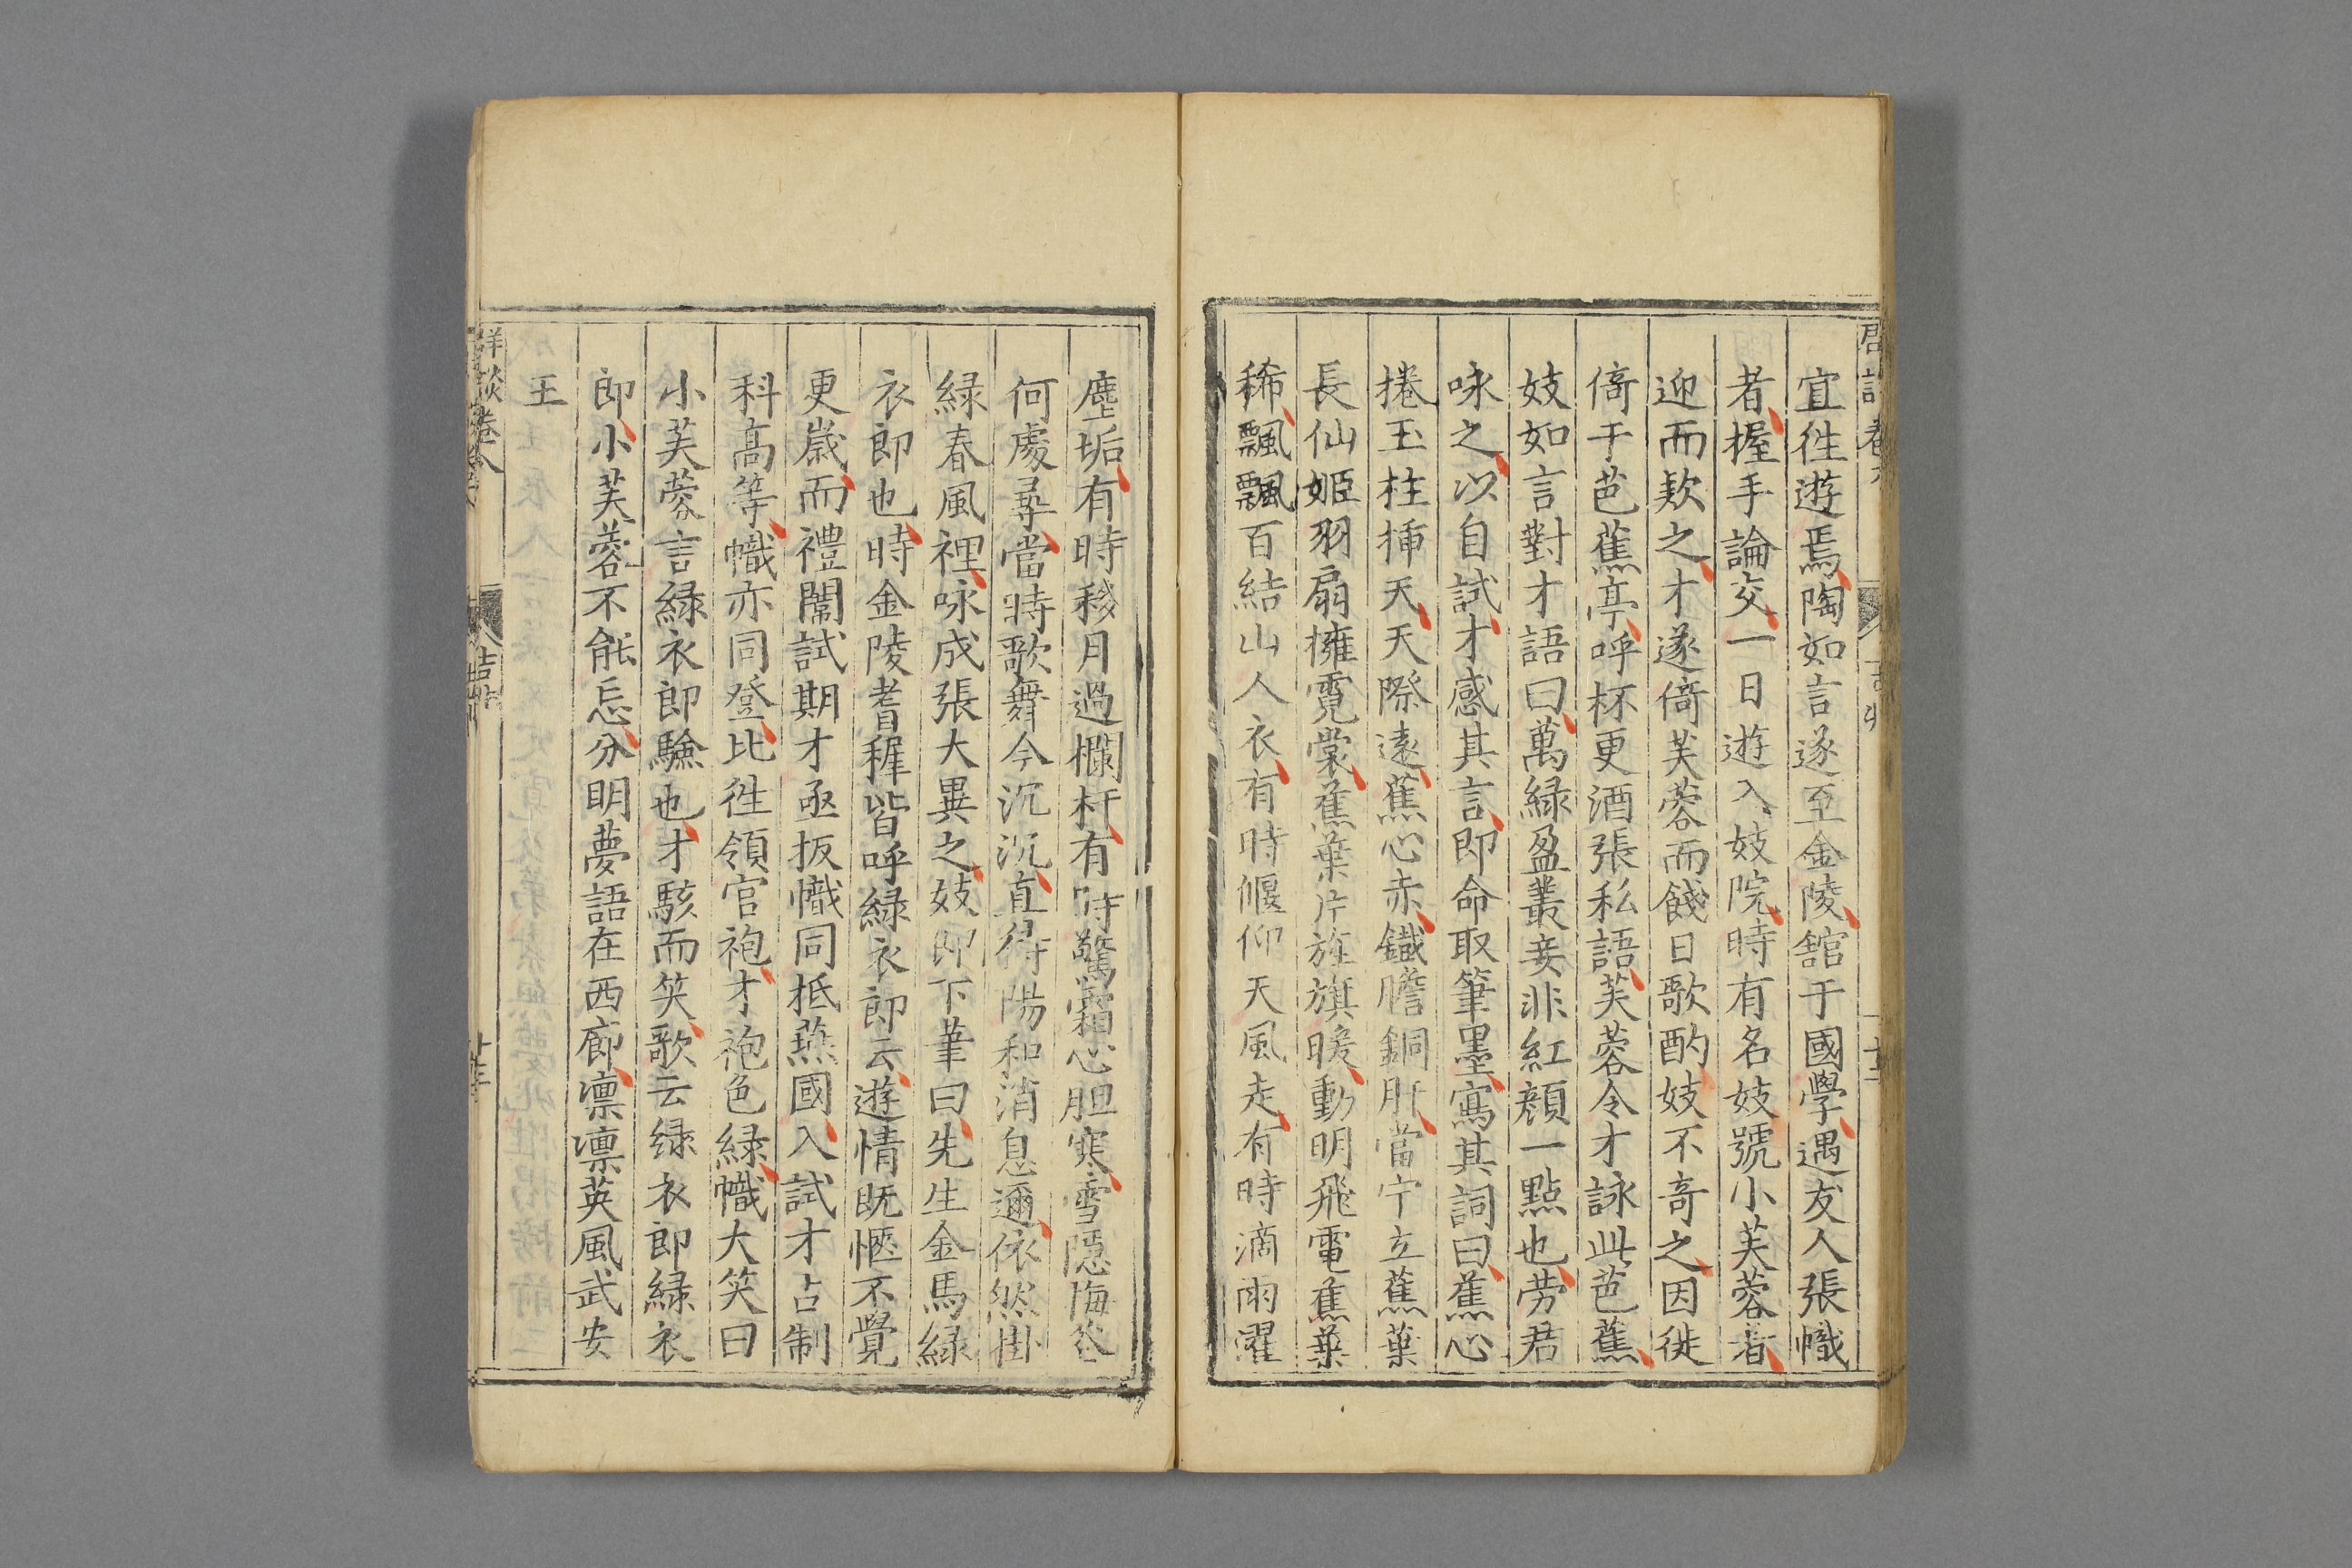 宜徃遊焉陶如言遂至金陵舘于國學遇友人張幟
者握手論交一日遊入妓院時有名妓號小芙蓉者
迎而欵之才遂倚芙蓉而餞日歌酌妓不竒之因徙
倚于芭蕉亭呼杯更酒張私語芙蓉令才詠此芭蕉
妓如言對才語曰萬緑盈叢妾非紅顔一點也劳君
咏之以自試才感其言即命取筆墨寫其詞曰蕉心
捲玉柱揷天天際遠蕉心赤鐵膽銅肝當宁立蕉葉
長仙姬羽扇擁霓裳蕉葉片旌旗暖動明飛電蕉葉
稀飄飄百結山人衣有時偃仰天風走有時滴雨濯
塵垢有時移月過欄杆有時驚霜心胆寒雪隠梅
何處尋當時歌舞今沉沉直待陽和消息邇依然掛
緑春風裡咏成張大異之妓即下筆曰先生金馬緑
衣郎也時金陵耆穉皆呼緑衣郎云遊情既愜不覺
更嵗而禮闈試期才亟扳幟同抵燕國入試才占制
科高等幟亦同登比徃領官袍才袍色緑幟大笑曰
小芙蓉言緑衣郎驗也才駭而笑歌云緑衣郎緑衣
郎小芙蓉不能忘分明夢語在西廊凛凛英風武安
王